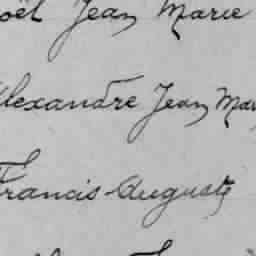 oël Jean Marie
Alexandre Jean Mar
Francis Auguste